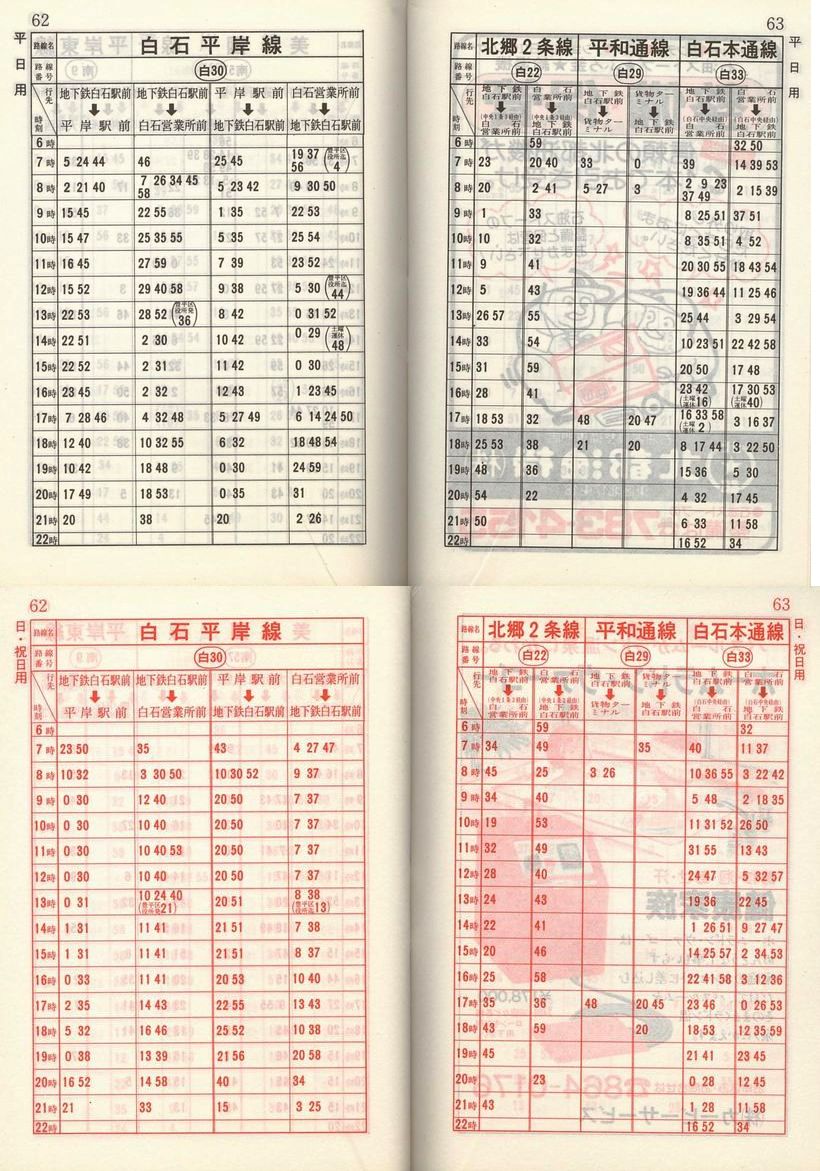 62
平日用
路線名 白石平岸線
路線番号 白30
行先 時刻
地下鉄白石駅前 平岸駅前
地下鉄白石駅前 白石営業所前
平岸駅前 地下鉄白石駅前
白石営業所前 地下鉄白石駅前
6時
7時 5 24 44 46 25 45 19 37 56 (豊平区役所迄 4)
8時 2 21 40 7 26 34 45 58 5 23 42 9 30 50
9時 15 45 22 55 1 35 22 53
10時 15 47 25 35 55 5 35 25 54
11時 16 45 27 59 7 39 23 52
12時 15 52 29 40 58 9 38 5 30 (豊平区役所迄 44)
13時 22 53 28 52 (豊平区役所発 36) 8 42 0 31 52
14時 22 51 2 30 10 42 0 29 (土曜運休 48)
15時 22 52 2 31 11 42 0 30
16時 23 45 2 32 12 43 1 23 45
17時 7 28 46 4 32 48 5 27 49 6 14 24 50
18時 12 40 10 32 55 6 32 18 48 54
19時 10 42 18 48 0 30 24 59
20時 17 49 18 53 0 35 31
21時 20 38 20 2 26
22時
63
平日用
路線名 北郷2条線 平和通線 白石本通線
路線番号 白22 白29 白33
行先 時刻
地下鉄白石駅前 (中央1条3経由) 白石営業所前
白石営業所前 (中央1条3経由) 地下鉄白石駅前
地下鉄白石駅前 貨物ターミナル
貨物ターミナル 地下鉄白石駅前
地下鉄白石駅前 (白石中央経由) 白石営業所前
白石営業所前 (白石中央経由) 地下鉄白石駅前
6時 59 32 50
7時 23 20 40 33 0 39 14 39 53
8時 20 2 41 5 27 3 2 9 23 37 49 2 15 39
9時 1 33 8 25 51 37 51
10時 10 32 8 35 51 4 52
11時 9 41 20 30 55 18 43 54
12時 5 43 19 36 44 11 25 46
13時 26 57 55 25 44 3 29 54
14時 33 54 10 23 51 22 42 58
15時 31 59 20 50 17 48
16時 28 41 23 42 (土曜運休16) 17 30 53 (土曜運休40)
17時 18 53 32 48 20 47 16 33 58 (土曜運休 2) 3 16 37
18時 25 53 38 21 20 8 17 44 3 22 50
19時 48 36 15 36 5 30
20時 54 22 4 32 17 45
21時 50 6 33 11 58
22時 16 52 34
62
日・祝日用
路線名 白石平岸線
路線番号 白30
行先 時刻
地下鉄白石駅前 平岸駅前
地下鉄白石駅前 白石営業所前
平岸駅前 地下鉄白石駅前
白石営業所前 地下鉄白石駅前
6時
7時 23 50 35 43 4 27 47
8時 10 32 3 30 50 10 30 52 9 37
9時 0 30 12 40 20 50 7 37
10時 0 30 10 40 20 50 7 37
11時 0 30 10 40 53 20 50 7 37
12時 0 30 10 40 20 50 7 37
13時 0 31 10 24 40 (豊平区役所発21) 20 51 8 38 (豊平区役所迄13)
14時 1 31 11 41 21 51 7 38
15時 1 31 11 41 21 51 8 37
16時 0 33 11 41 20 53 10 40
17時 2 35 14 43 22 55 13 43
18時 5 32 16 46 25 52 10 38
19時 0 38 13 39 21 56 20 58
20時 16 52 14 58 40 34
21時 21 33 15 3 25
22時
63
日・祝日用
路線名 北郷2条線 平和通線 白石本通線
路線番号 白22 白29 白33
行先 時刻
地下鉄白石駅前 (中央1条3経由) 白石営業所前
白石営業所前 (中央1条3経由) 地下鉄白石駅前
地下鉄白石駅前 貨物ターミナル
貨物ターミナル 地下鉄白石駅前
地下鉄白石駅前 (白石中央経由) 白石営業所前
白石営業所前 (白石中央経由) 地下鉄白石駅前
6時 59 32
7時 34 49 35 40 11 37
8時 45 25 3 26 10 36 55 3 22 42
9時 34 40 5 48 2 18 35
10時 19 53 11 31 52 26 50
11時 32 49 31 55 13 43
12時 28 40 24 47 5 32 57
13時 24 43 19 36 22 45
14時 22 41 1 26 51 9 27 47
15時 20 46 14 25 57 2 34 53
16時 25 58 22 41 58 3 12 36
17時 35 36 48 20 45 23 46 0 26 53
18時 43 59 20 18 53 12 35 59
19時 45 21 41 23 45
20時 23 0 28 12 45
21時 43 1 28 11 58
22時 16 52 34